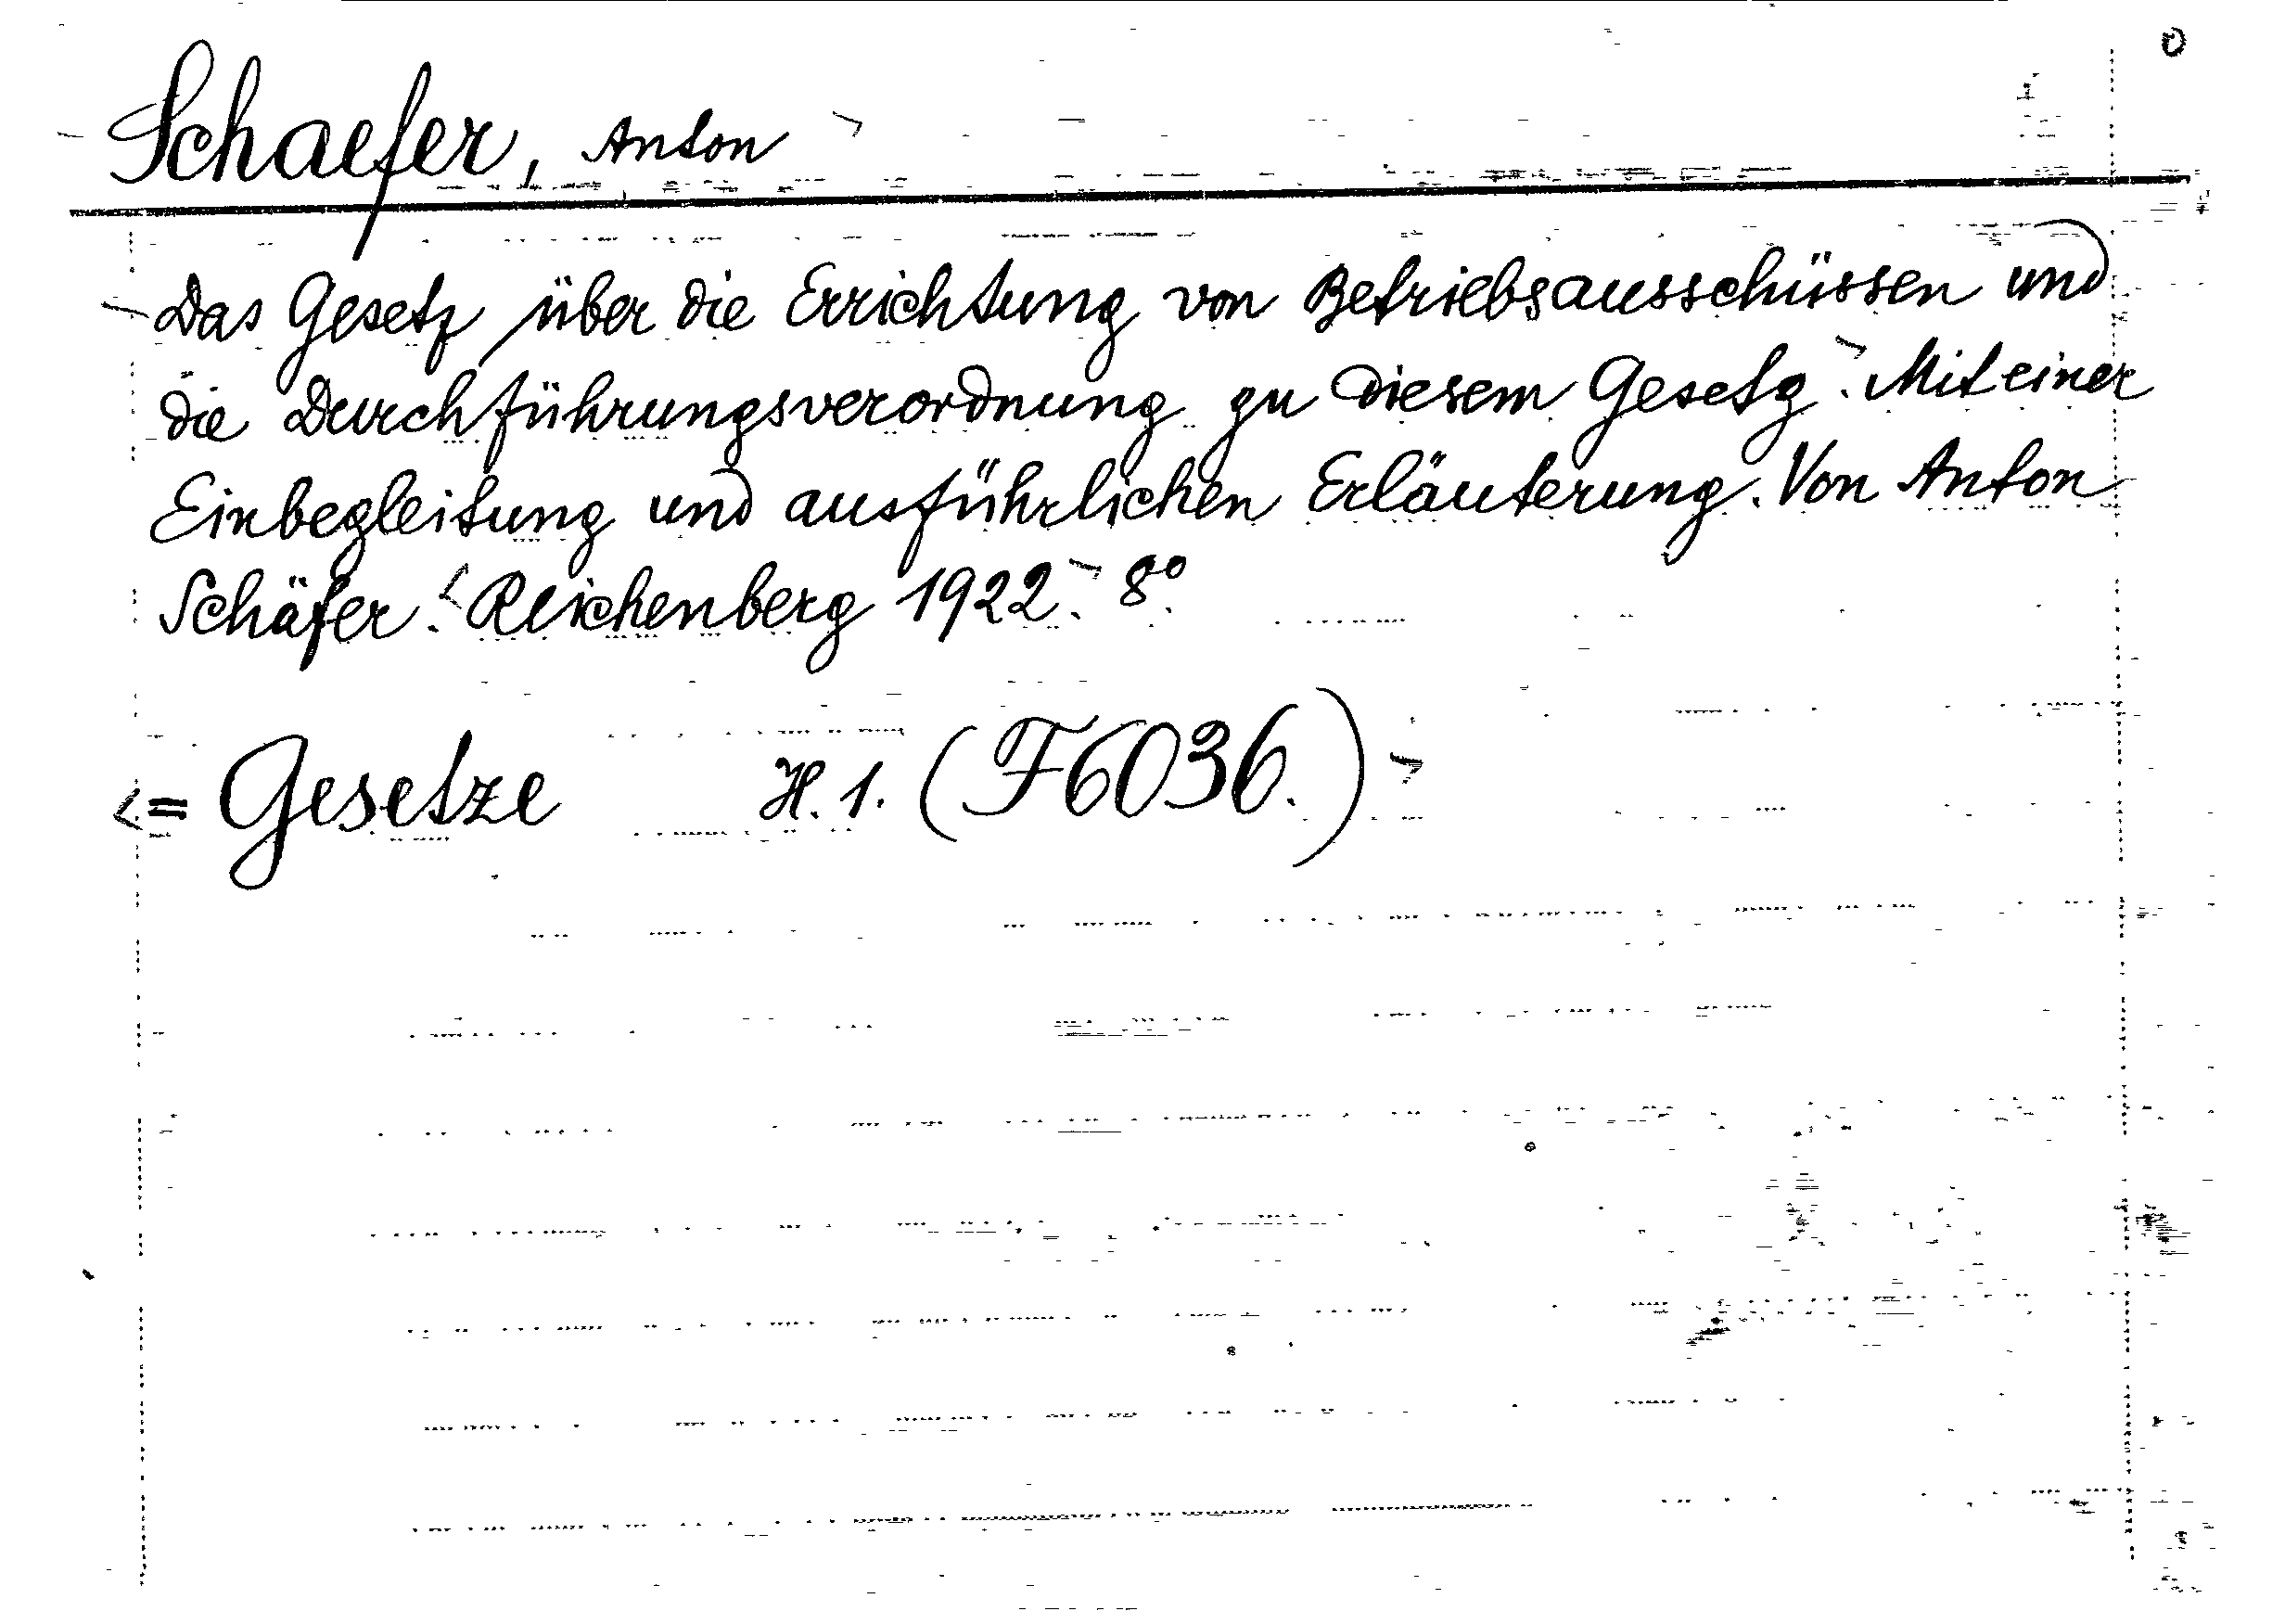 Schaefer, Anton
Das Gesetz über die Errichtung von Betriebsausschüssen und
die Durchführungsverordnung zu diesem Gesetz. Mit einer
Einbegleitung und ausführlichen Erläuterung. Von Anton
Schäfer. Reichenberg 1922. 8°.
= Gesetze H. 1. (F6036.)